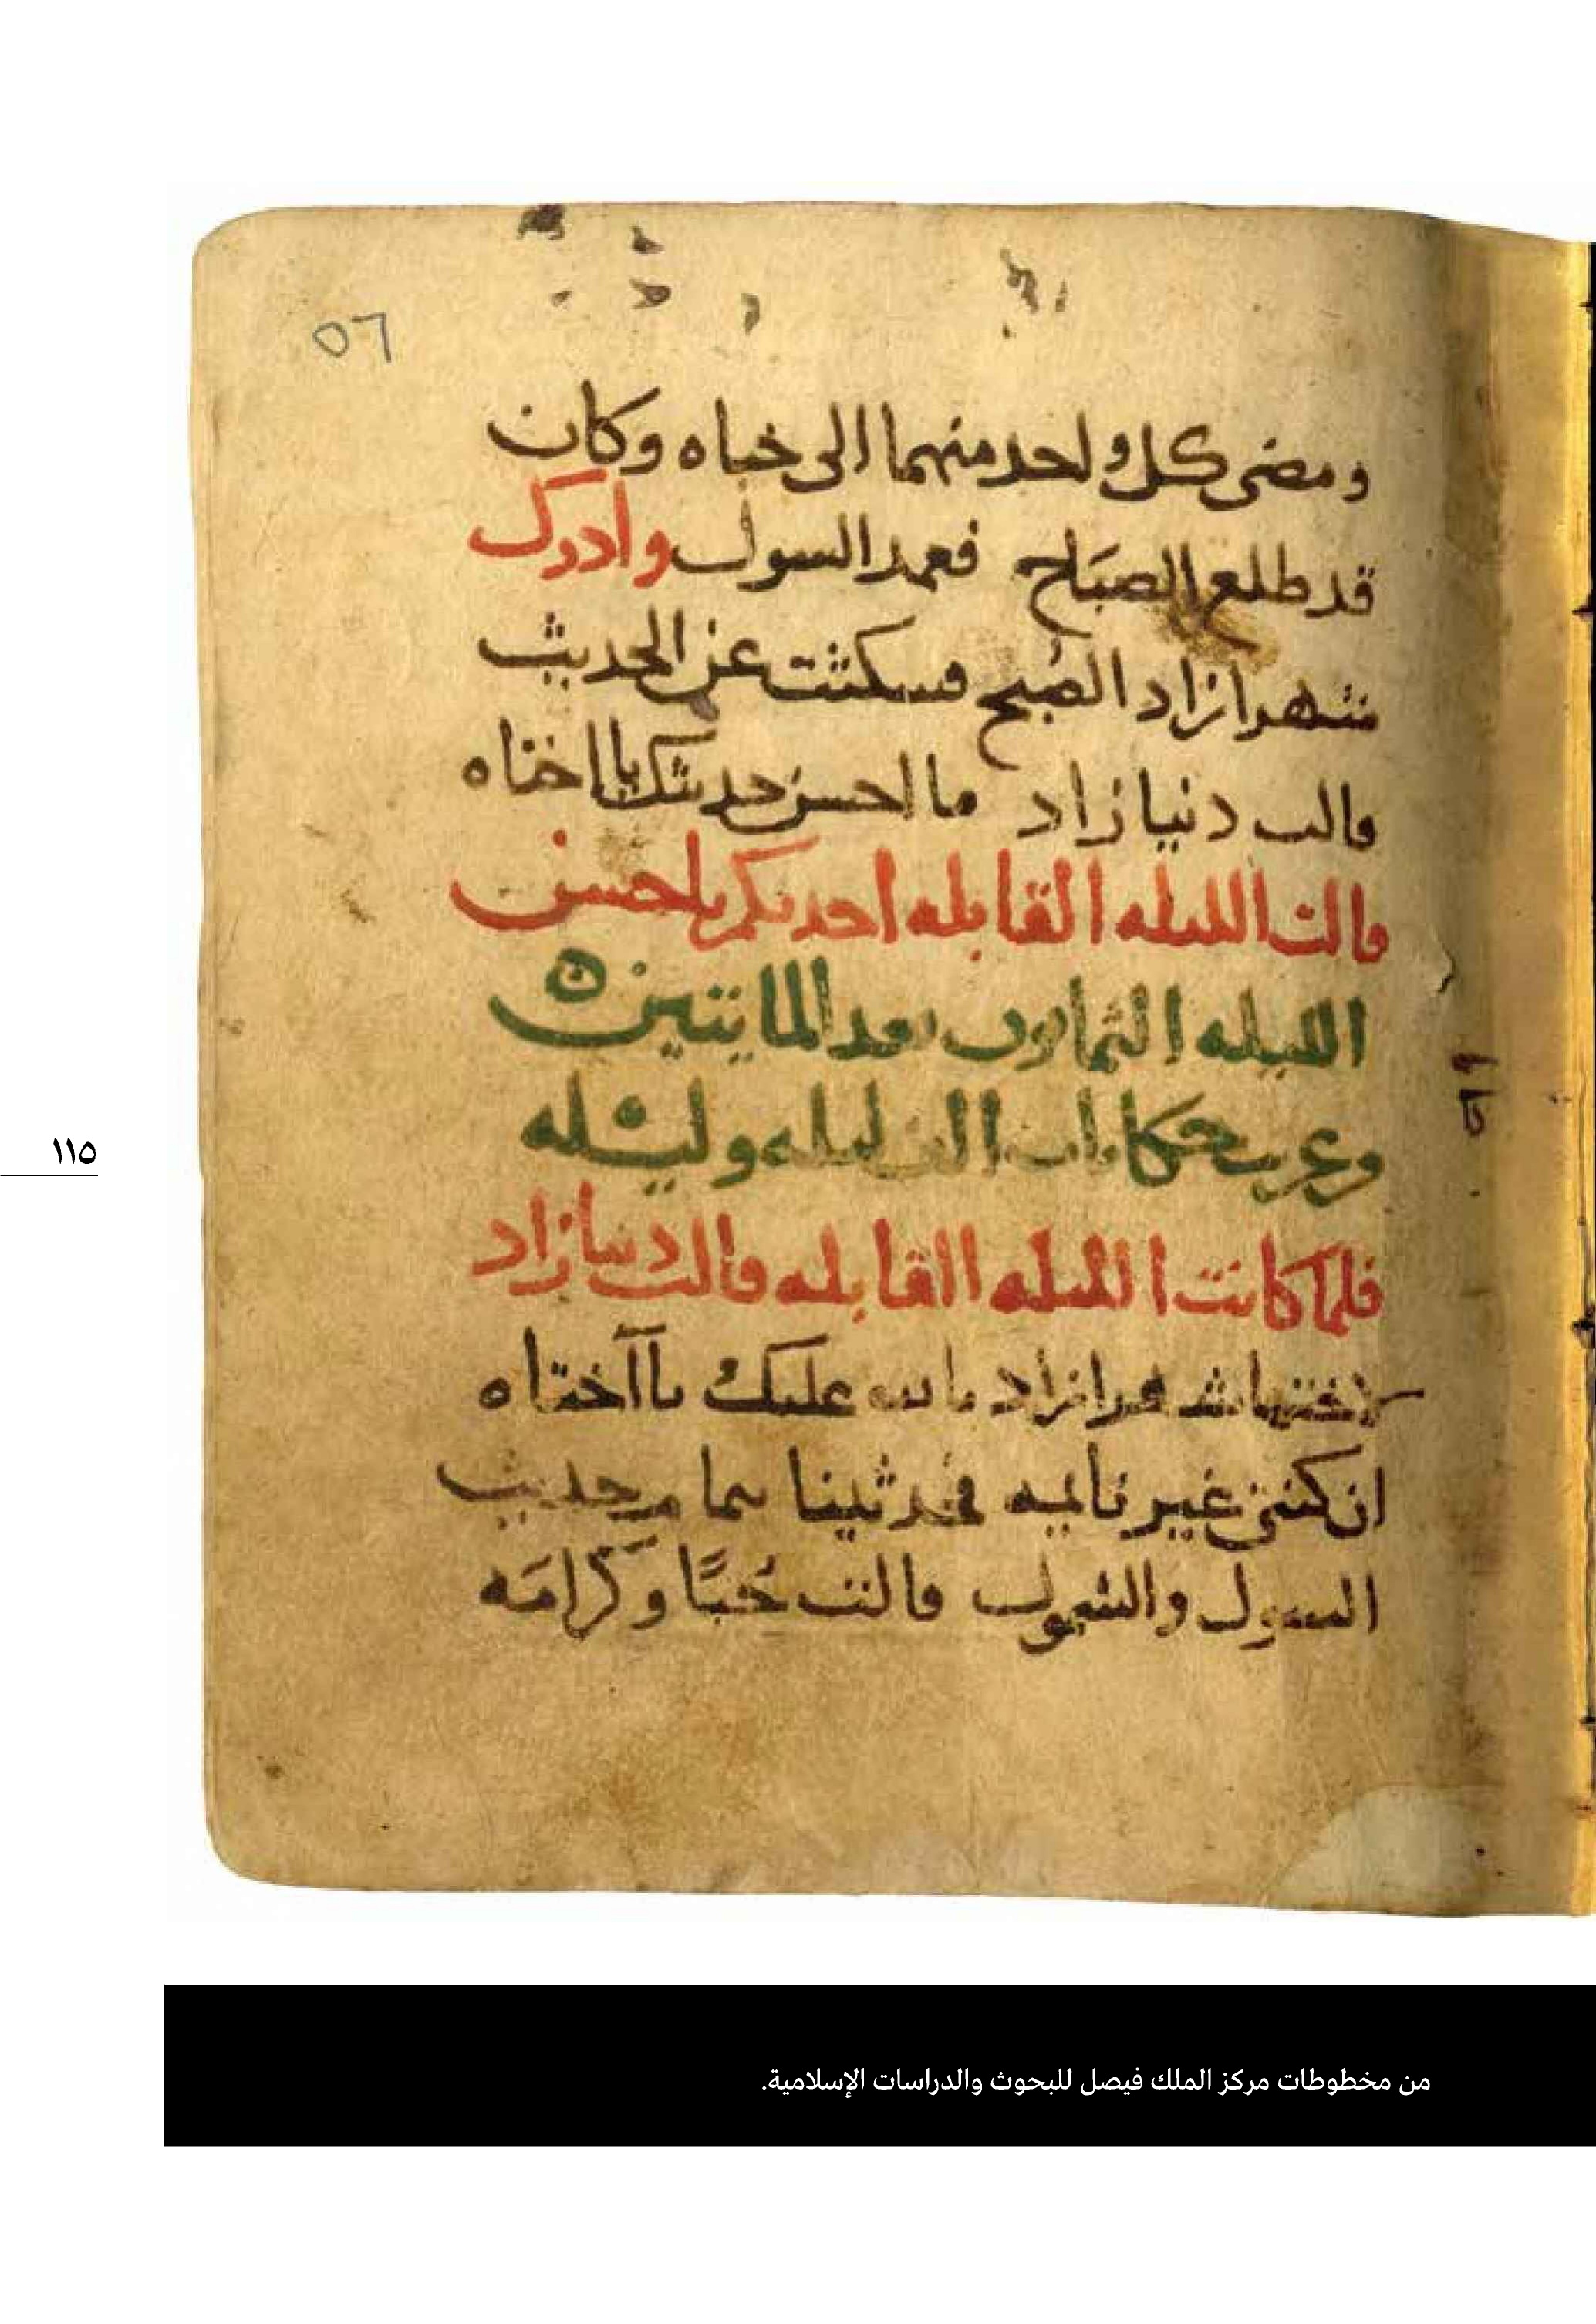 ٥٦
ومضى كل واحد منهما الى خباه وكان
قد طلع الصباح فعمد السول وادرك
شهرازاد الصبح فسكتت عن الحديث
قالت دنيازاد ما احسن حديثك يا اختاه
قالت الليله القابله احدثكم باحسن
الليله الثمانون بعد المايتين ه
وعر حكايات الف ليله وليله
فلما كانت الليله القابله قالت دنيازاد
لاختها شهرازاد بالله عليك يا اختاه
ان كنتي غير نايمه فحدثينا بما من حديث
السول والشمول قالت حبًا وكرامَه
١١٥
من مخطوطات مركز الملك فيصل للبحوث والدراسات الإسلامية.